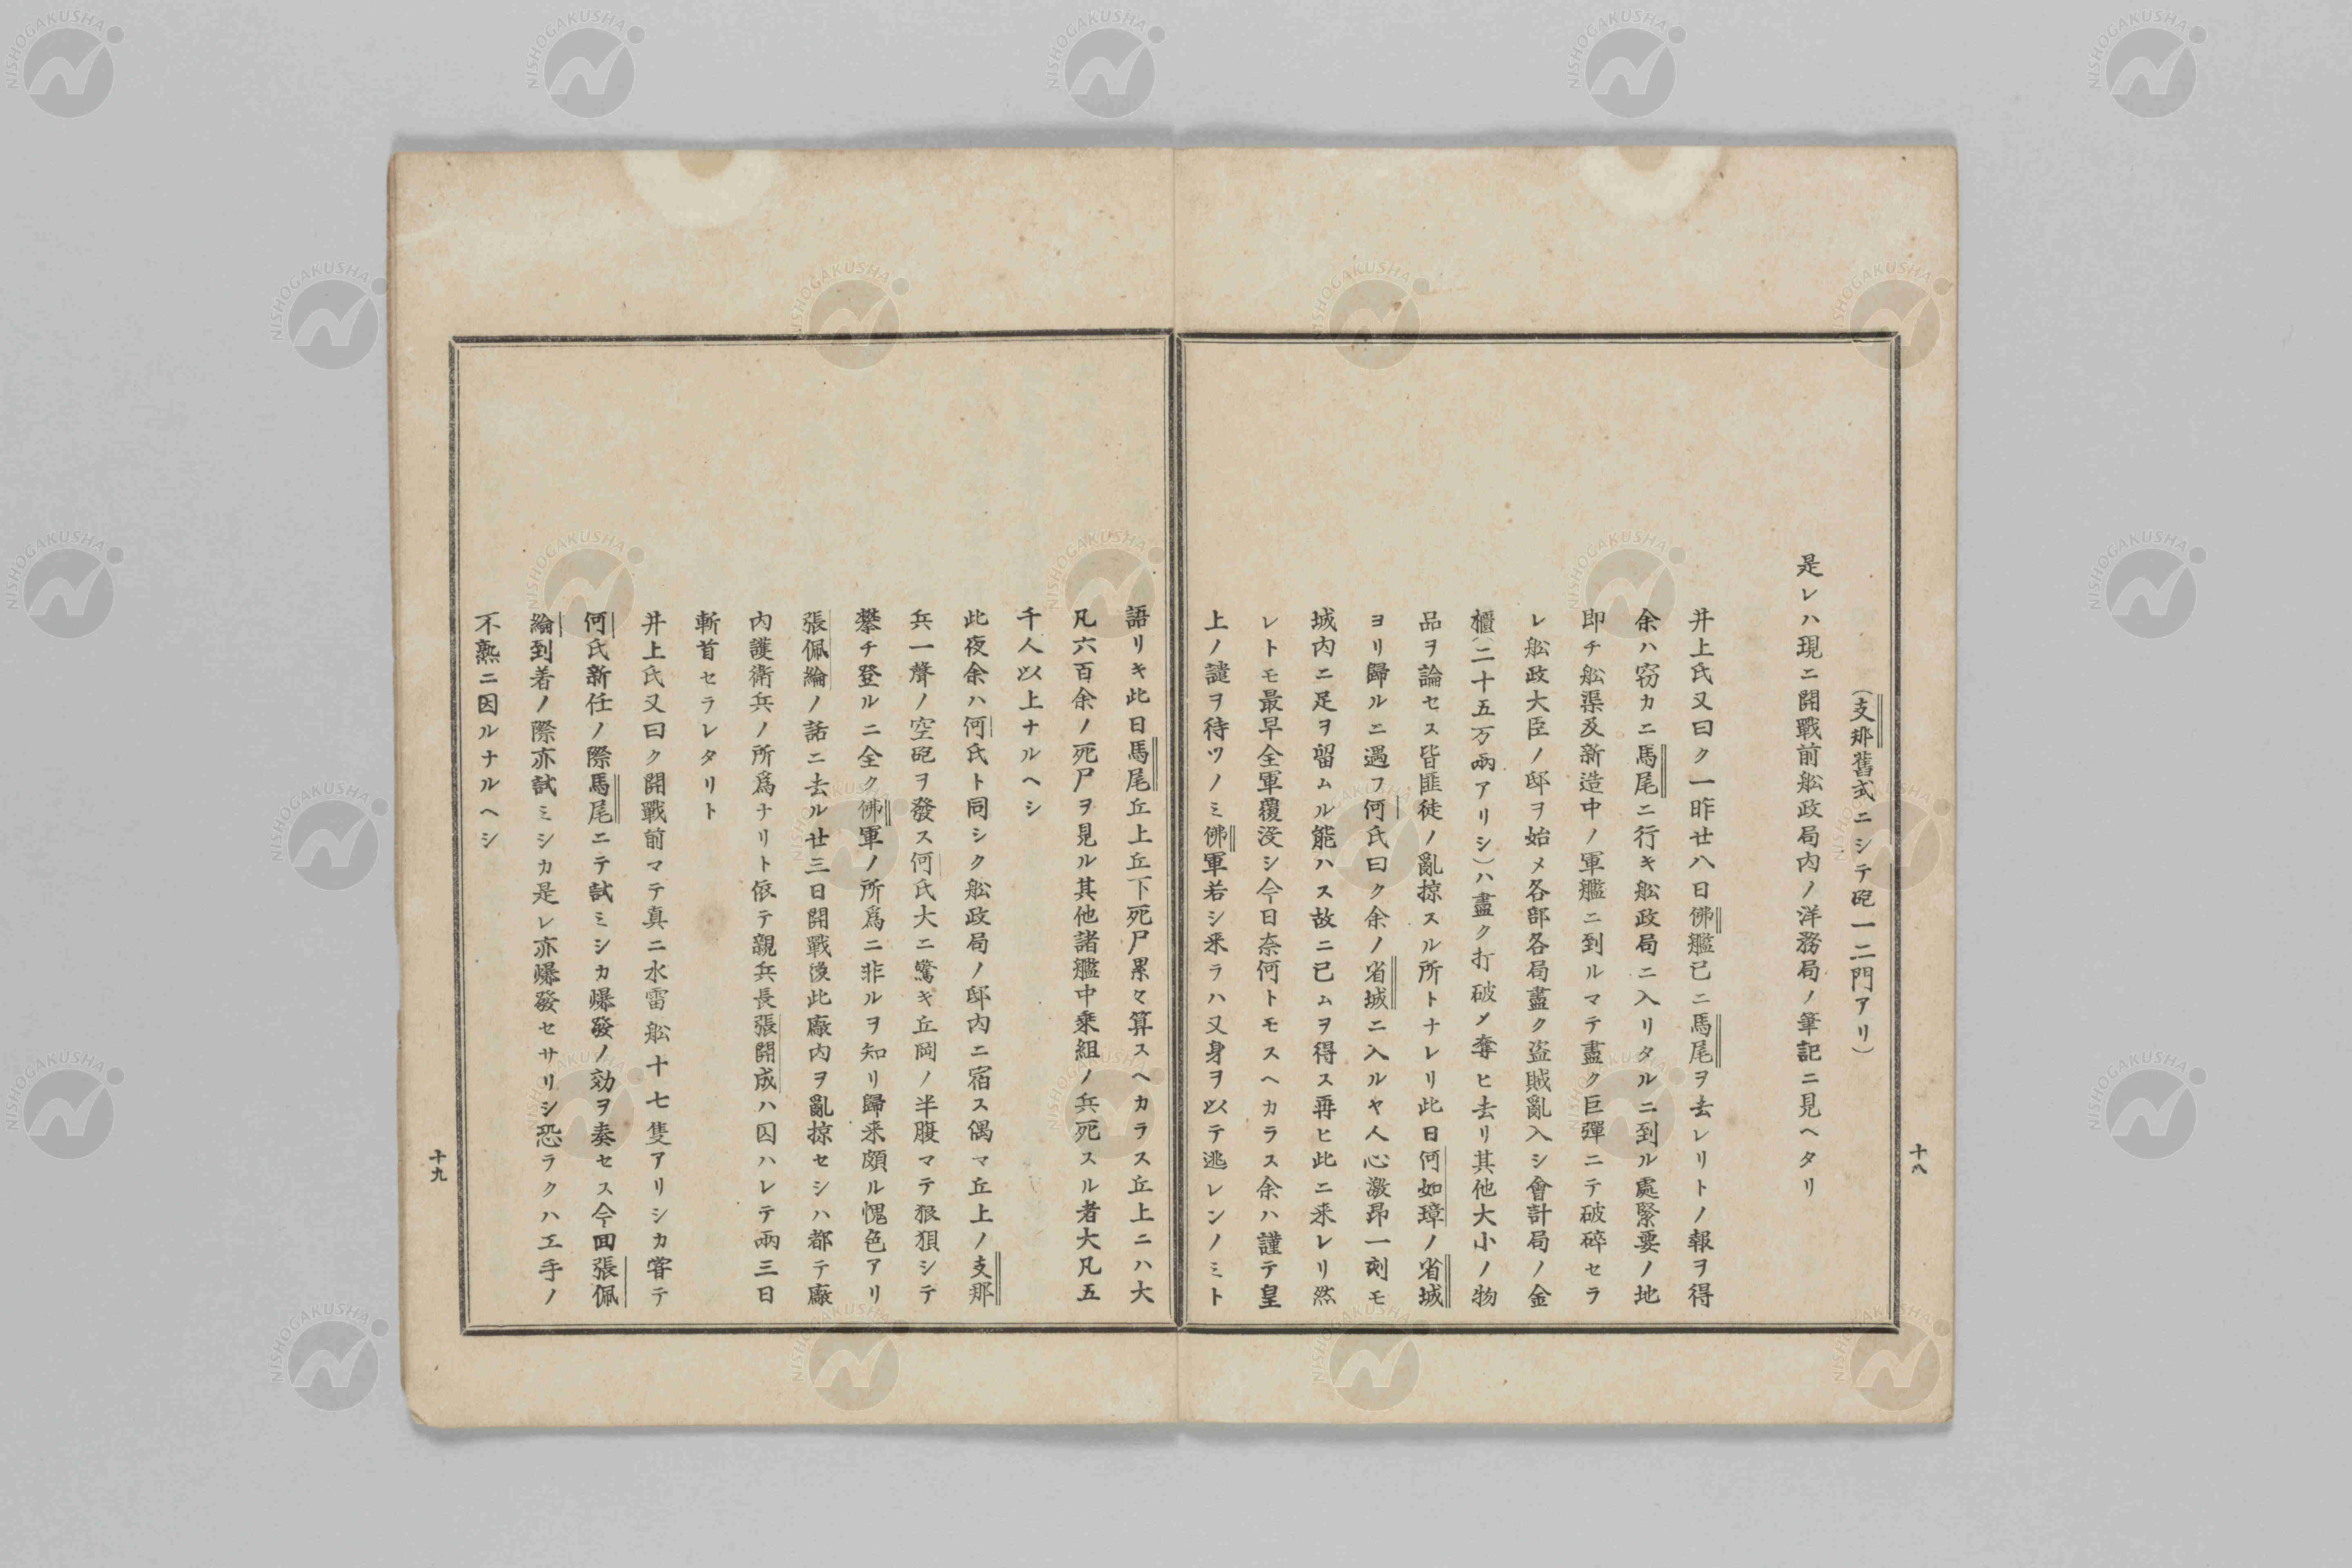 十八
(支那舊式ニシテ砲一二門アリ)
是レハ現ニ開戰前舩政局内ノ洋務局ノ筆記ニ見ヘタリ
井上氏又曰ク一昨廿八日佛艦已ニ馬尾ヲ去レリトノ報ヲ得
余ハ窃カニ馬尾ニ行キ舩政局ニ入リタルニ到ル處緊要ノ地
即チ舩渠及新造中ノ軍艦ニ到ルマテ盡ク巨彈ニテ破碎セラ
レ舩政大臣ノ邸ヲ始メ各部各局盡ク盗賊亂入シ會計局ノ金
櫃(二十五万兩アリシ)ハ盡ク打破メ奪ヒ去リ其他大小ノ物
品ヲ論セス皆匪徒ノ亂掠スル所トナレリ此日何如璋ノ省城
ヨリ歸ルニ遇フ何氏曰ク余ノ省城ニ入ルヤ人心激昂一刻モ
城内ニ足ヲ留ムル能ハス故ニ已ムヲ得ス再ヒ此ニ来レリ然
レトモ最早全軍覆没シ今日奈何トモスヘカラス余ハ謹テ皇
上ノ譴ヲ待ツノミ佛軍若シ来ラハ又身ヲ以テ逃レンノミト
語リキ此日馬尾丘上丘下死尸累々算スヘカラス丘上ニハ大
凡六百余ノ死尸ヲ見ル其他諸艦中乗組ノ兵死スル者大凡五
千人以上ナルヘシ
此夜余ハ何氏ト同シク舩政局ノ邸内ニ宿ス偶マ丘上ノ支那
兵一聲ノ空砲ヲ發ス何氏大ニ驚キ丘岡ノ半腹マテ狼狽シテ
攀チ登ルニ全ク佛軍ノ所爲ニ非ルヲ知リ歸来頗ル愧色アリ
張佩綸ノ話ニ去ル廿三日開戰後此廠内ヲ亂掠セシハ都テ廠
内護衛兵ノ所爲ナリト依テ親兵長張開成ハ囚ハレテ兩三日
斬首セラレタリト
井上氏又曰ク開戰前マテ真ニ水雷舩十七隻アリシカ甞テ
何氏新任ノ際馬尾ニテ試ミシカ爆發ノ効ヲ奏セス今回張佩
綸到着ノ際亦試ミシカ是レ亦爆發セサリシ恐ラクハ工手ノ
不熟ニ因ルナルヘシ
十九
NISHOGAKUSHA